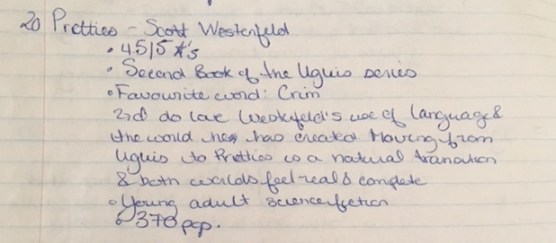 20 Pretties - Scott Westenfeld
• 4.5/5 *'s
• Second Book of the Uglies series
• Favourite word: Crim
I do love Westerfeld's use of language &
the world he has created. Moving from
Uglies to Pretties is a natural transition
& both worlds feel real & complete
• Young adult science fiction
• 370 pgp.